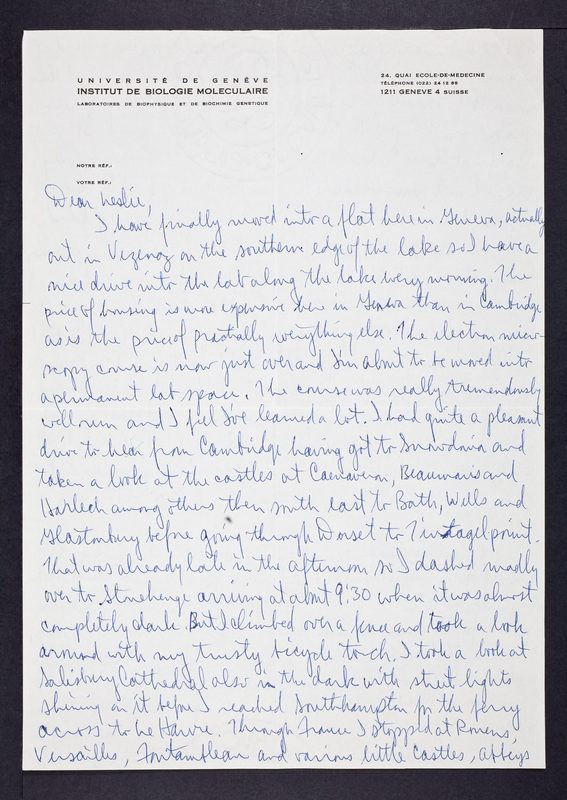 UNIVERSITÉ DE GENÈVE
INSTITUT DE BIOLOGIE MOLECULAIRE
LABORATOIRES DE BIOPHYSIQUE ET DE BIOCHIMIE GENETIQUE
24, QUAI ECOLE-DE-MEDECINE
TÉLÉPHONE (022) 24 12 68
1211 GENEVE 4 SUISSE
NOTRE RÉF.:
VOTRE RÉF.:
Dear Leslie,
I have finally moved into a flat here in Geneva, actually
out in Vezenaz on the southern edge of the lake so I have a
nice drive into the lab along the lake every morning. The
price of housing is more expensive here in Geneva than in Cambridge
as is the price of practially everything else. The electron micro-
scopy course is now just over and I'm about to be moved into
a permanent lab space. The course was really tremendously
well run and I feel I've learned a lot. I had quite a pleasant
drive to hear from Cambridge having got to Snowdonia and
taken a look at the castles at Caenavern, Beaumauris and
Harlech among others then south east to Bath, Wells and
Glastonbury before going through Dorset to Tintagel point.
That was already late in the afternoon so I dashed madly
over to Stonehenge arriving at about 9:30 when it was almost
completely dark. But I climbed over a fence and took a look
around with my trusty bicycle torch. I took a look at
Salisbury Cathedral also in the dark with street lights
shining on it before I reached Southhampton for the ferry
across to Le Havre. Through France I stopped at Romens,
Versailles, Fontambleau and various little castles, abbeys